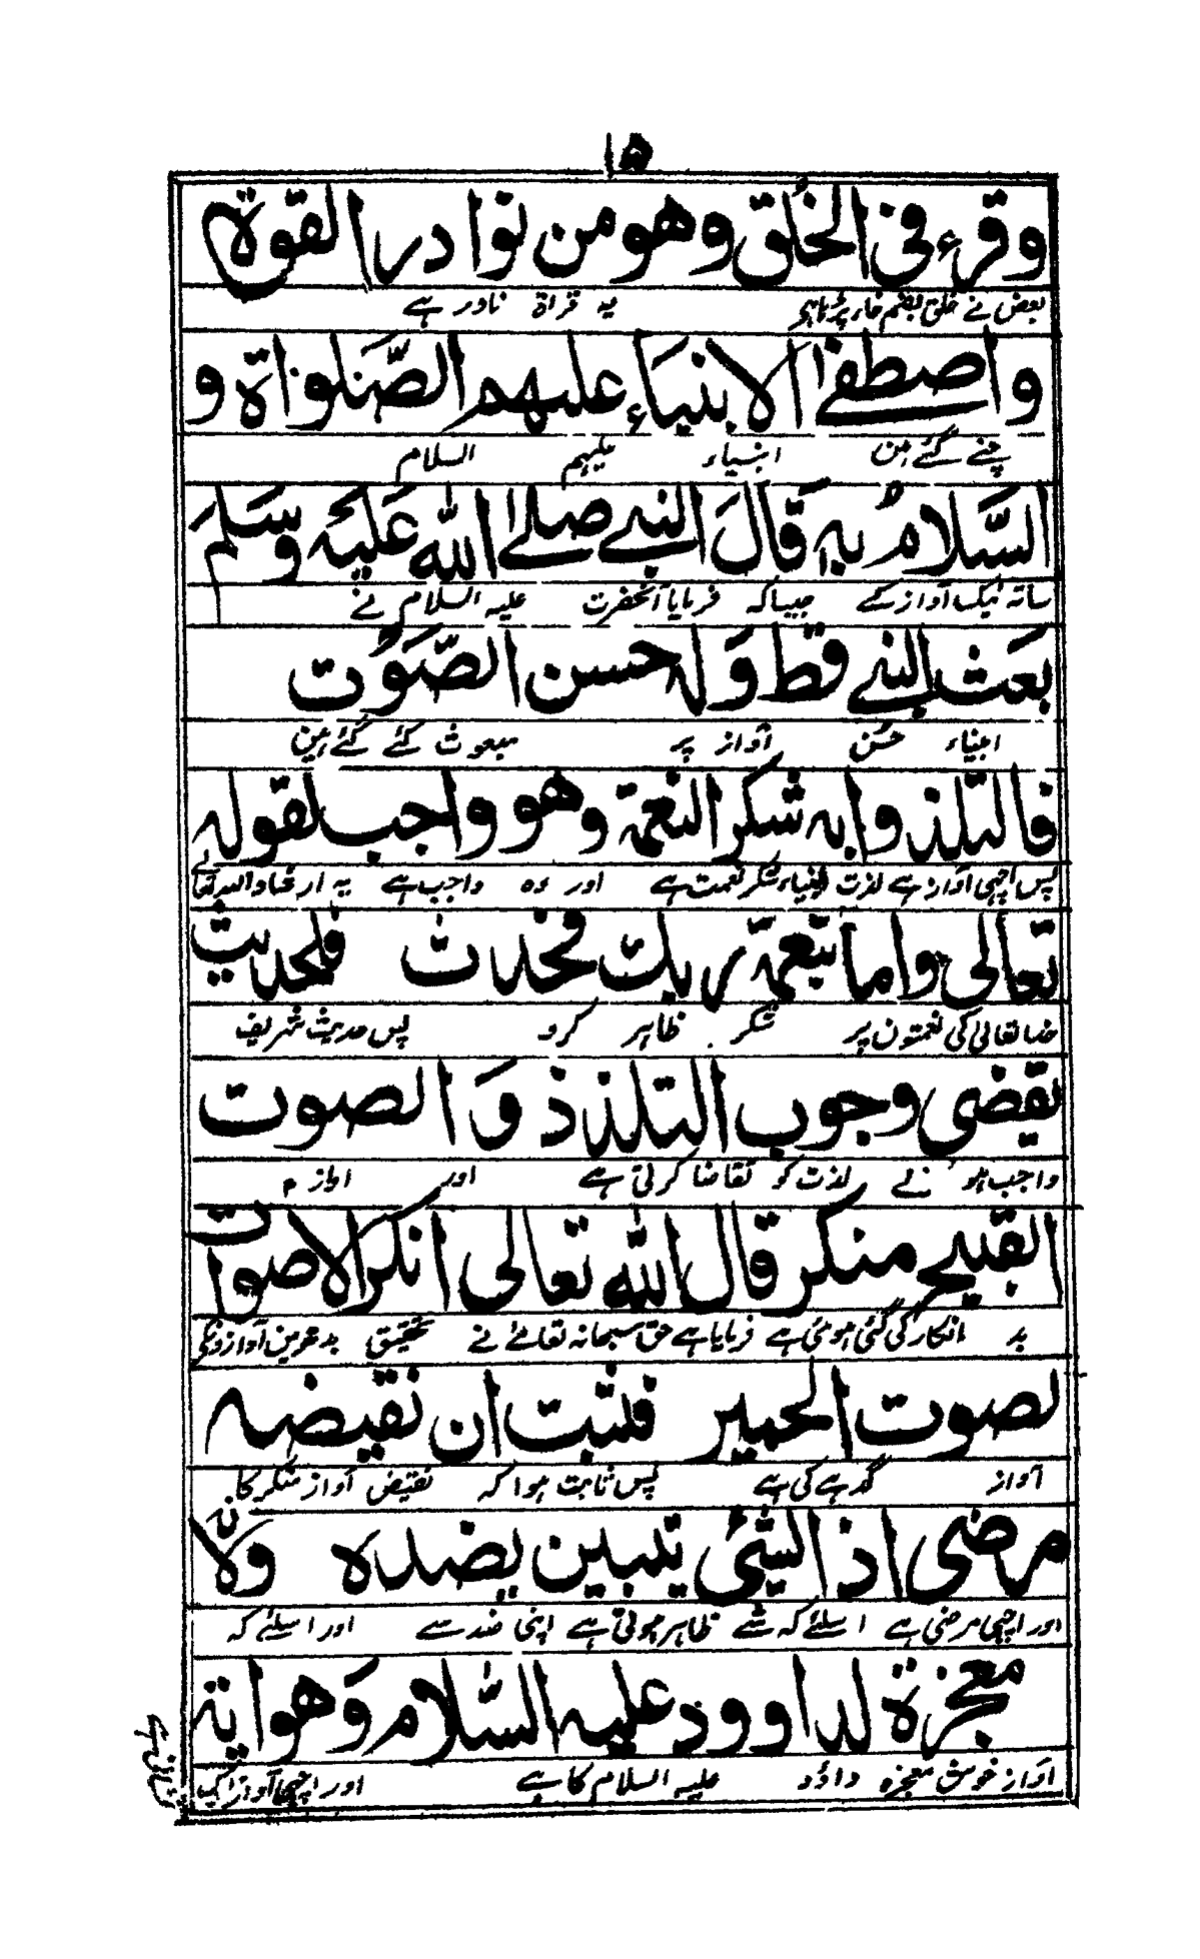 ۱۵
وقرء فی الخُلق وهو من نوادر القوة
بعض نے خلق بضم خاء پڑہا ہی یہ قراۃ نادر ہے
واصطفیٰ الانبیاء علیهم الصّلواة و
چنے گئے ہین انبیاء علیہم السلام
السَّلامُ به قَالَ النبی صلے الله عَلیَه وسَلم
ساتہ نیک آواز کے جیسا کہ فرمایا آنحضرت علیہ السلام نے
بعَث النبی قط وَله حسن الصَّوُت
انبیاء حُسن آواز پر مبعوث کئے گئے ہین
فالتلذذوا به شکر النعمة وهو واجب لقوله
پس اچہی آواز سے لذت لینا شکر نعمت ہے اور وہ واجب ہے بہ ارشاد اللہ تعالے
تعالی واما بنعمة ربك فحدث فلحدیث
خدا تعالی کی نعمتون پر شکر ظاہر کرو پس حدیث شریف
یقضی وجوب التلذذ وَ الصوت
واجب ہونے لذت کو تقاضا کرتی ہے اور آواز
القبیح منکر قال الله تعالی انکر الاصوات
بد انکار کی گئی ہوئی ہے فرمایا ہے حق سبحانہ تعالےٰ نے تحقیق بدترین آوازونکی
لصوت الحمیر فثبت ان نقیضه
آواز گدہے کی ہے پس ثابت ہوا کہ نقیض آواز منکر کا
مرضی اذ الشئ یتبین بضده ولان
اور اچہی مرضی ہے اسلئے کہ شے ظاہر ہوتی ہے اپنی ضد سے اور اسلئے کہ
معجزة لداوود علیه السَّلام وَهو ایة
آواز خوش معجزہ داؤد علیہ السلام کا ہے اور اچہی آواز ایک